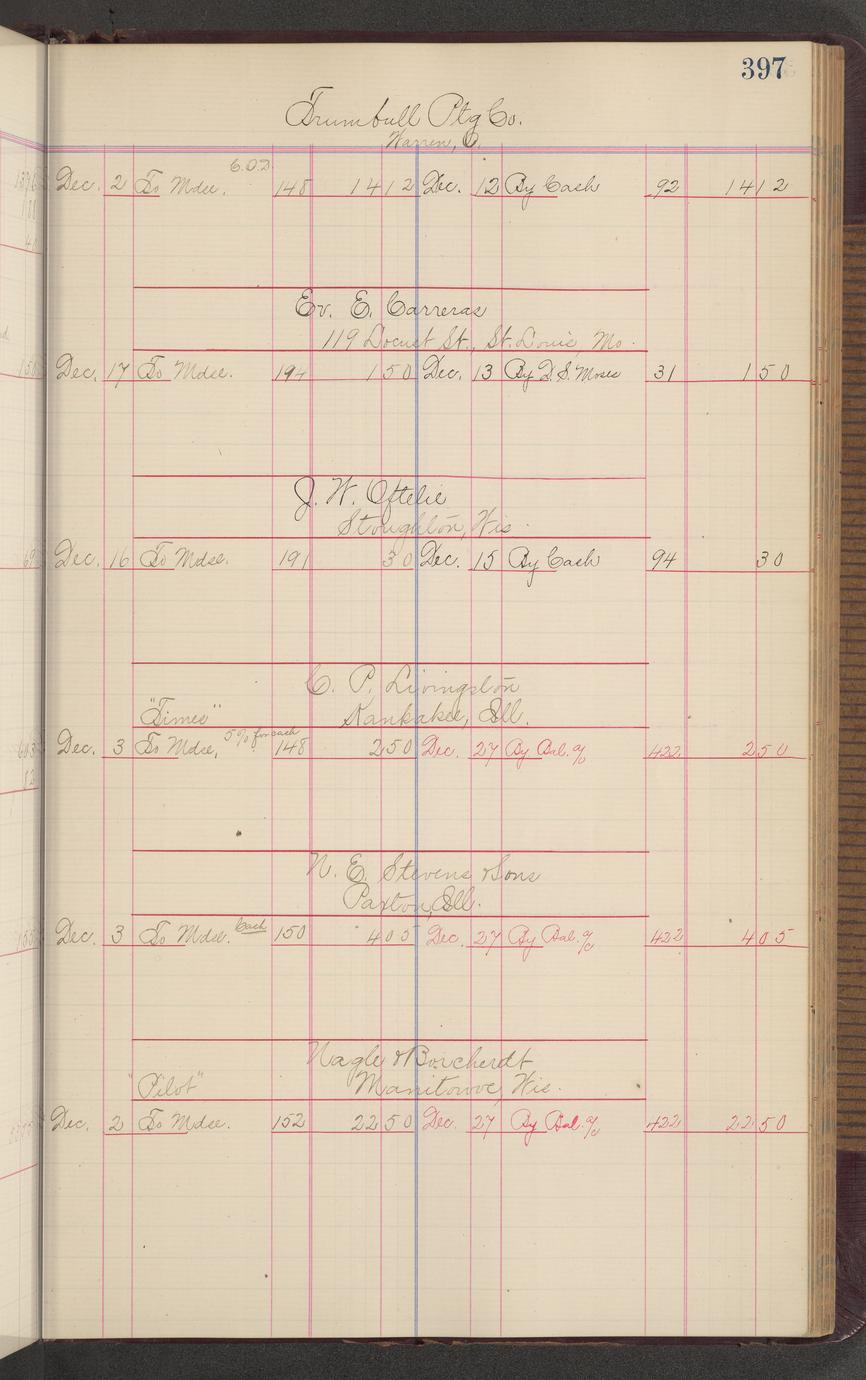 397
Trumbull Ptg Co.
Warren, O.
C.O.D.
Dec. 2 To Mdse. 148 14 12 Dec. 12 By Cash 92 14 12
Ev. E. Carreras
119 Locust St., St. Louis, Mo.
Dec. 17 To Mdse. 194 1 50 Dec. 13 By D. S. Moses 31 1 50
J. W. Oftelie
Stoughton, Wis.
Dec. 16 To Mdse. 191 30 Dec. 15 By Cash 94 30
C. P. Livingston
"Times" Kankakee, Ill.
Dec. 3 To Mdse, 5% for cash 148 2 50 Dec. 27 By Bal. a/c 422 2 50
N. E. Stevens & Sons
Paxton, Ill.
Dec. 3 To Mdse. Cash 150 4 05 Dec. 27 By Bal. a/c 422 4 05
Nagle & Borcherdt
"Pilot" Manitowoc, Wis.
Dec. 2 To Mdse. 152 22 50 Dec. 27 By Bal. a/c 422 22 50